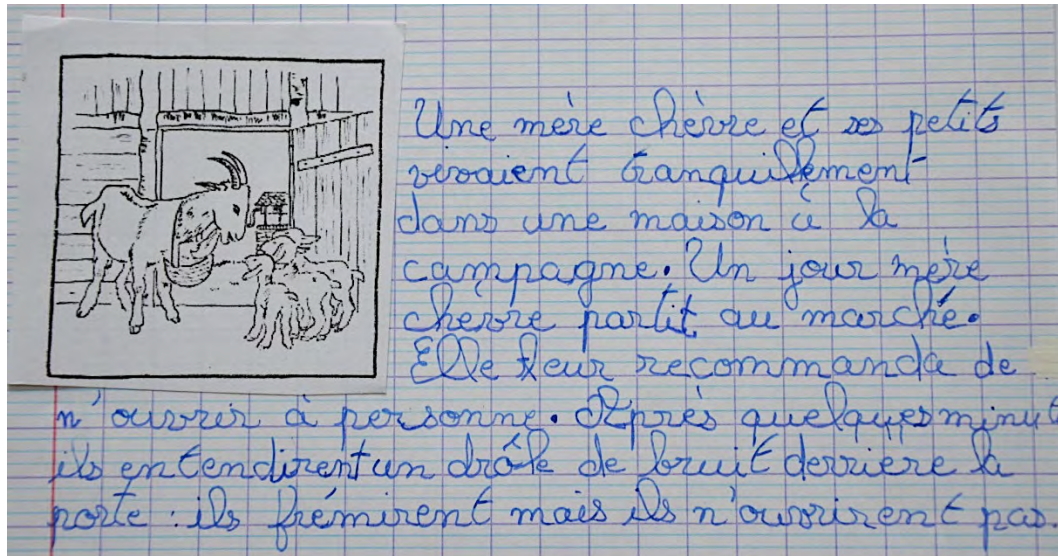 Une mère chèvre et ses petits
vivaient tranquillement
dans une maison à la
campagne. Un jour mère
chèvre partit au marché.
Elle leur recommanda de
n'ouvrir à personne. Après quelques minut
ils entendirent un drôle de bruit derriere la
porte : ils frémirent mais ils n'ouvrirent pas.